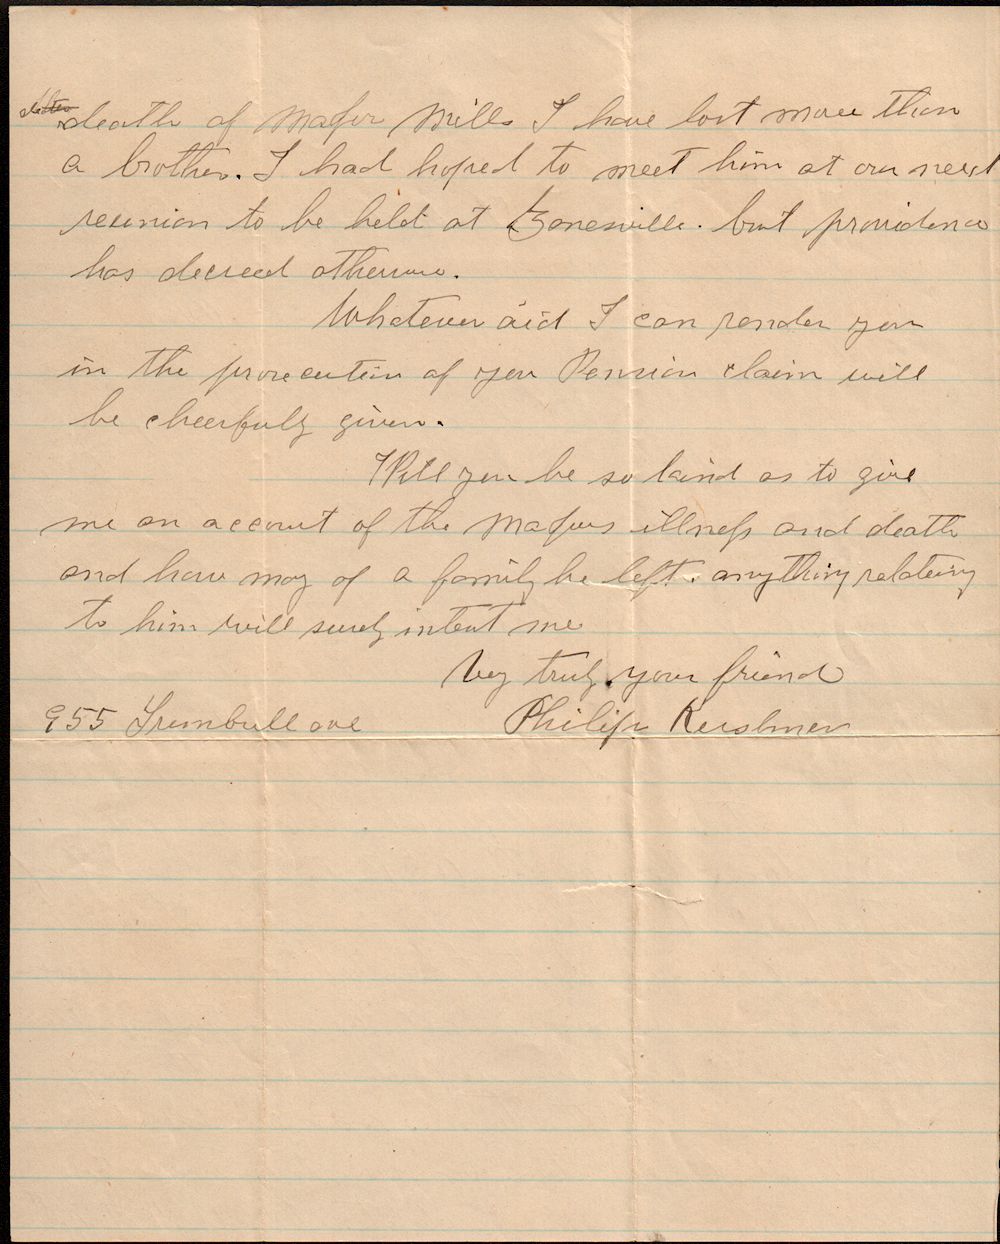 death of Major Mills I have lost more than
a brother. I had hoped to meet him at our next
reunion to be held at Zanesville. but providence
has decreed otherwise.
Whatever aid I can render you
in the prosecution of your Pension claim will
be cheerfully given.
Will you be so kind as to give
me an account of the Majors illness and death
and how may of a family he left. anything relating
to him will surely interest me
Very truly your friend
955 Trumbull ave Philip Kershner